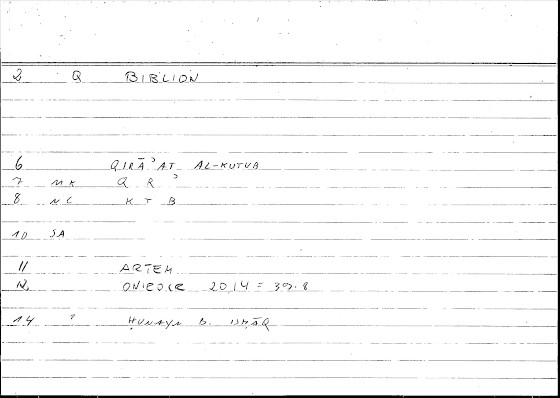 2 Q BIBLION
6 QIRĀʾAT AL-KUTUB
7 MK Q R ʾ
8 NC K T B
10 SA
11 ARTEM
12 ONIEOCR 20,14 = 39.8
14 ? ḤUNAYN B. ISḤĀQ